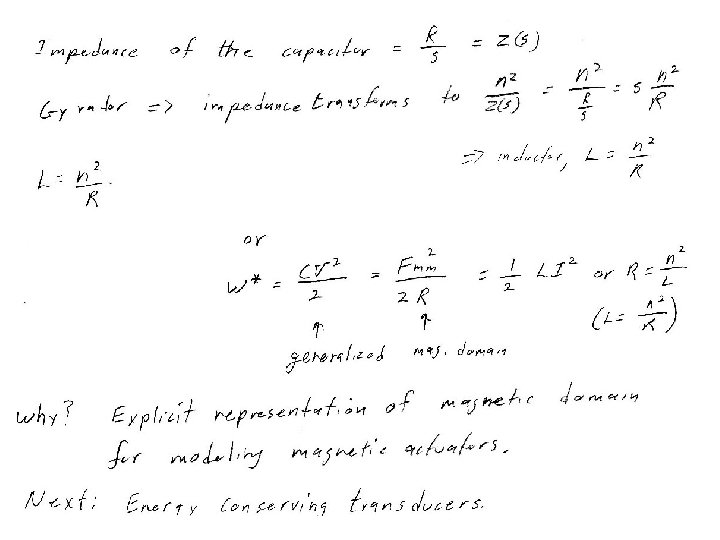 Impedance of the capacitor = R/s = Z(s)
Gyrator => impedance transforms to n²/Z(s) = n²/(R/s) = s n²/R
=> inductor, L = n²/R
L = n²/R.
or
W* = CV²/2 = Fmm²/2R = 1/2 LI² or R = n²/L
(L = n²/R)
↑ ↑
generalized mag. domain
Why? Explicit representation of magnetic domain
for modeling magnetic actuators.
Next: Energy conserving transducers.